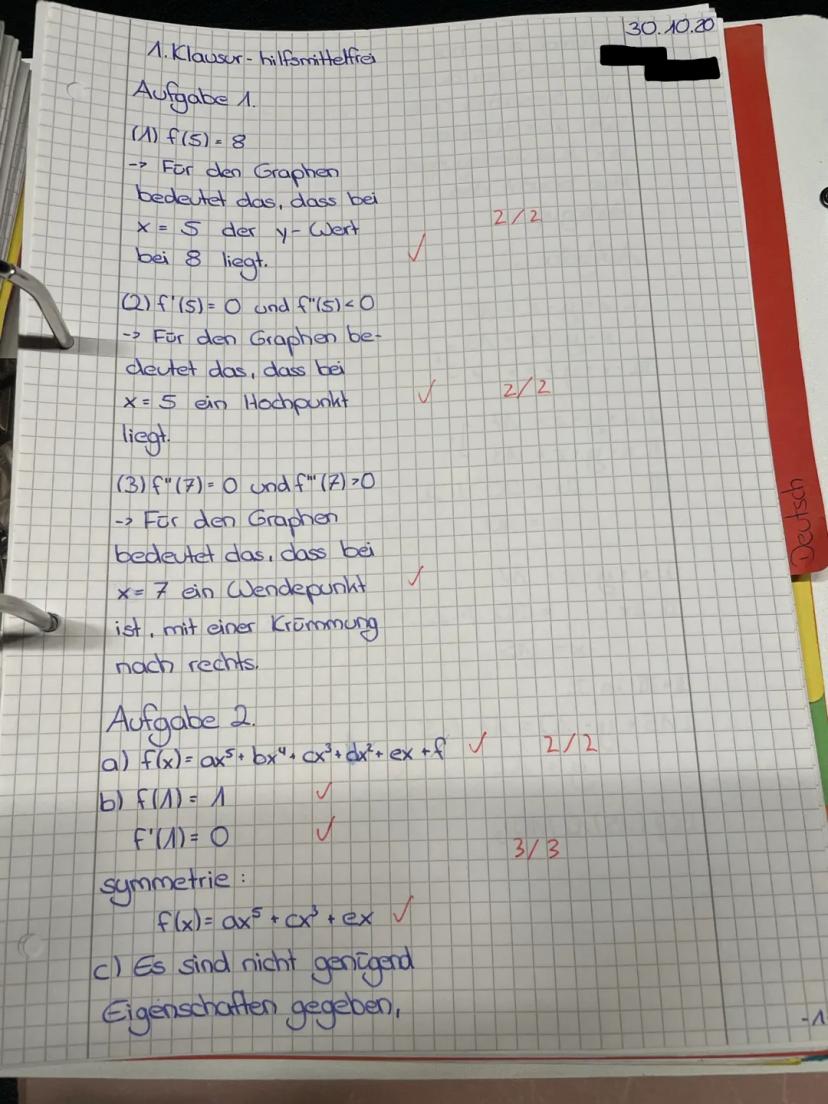 30.10.20
1. Klausur - hilfsmittelfrei
Aufgabe 1.
(1) f(5) = 8
-> Für den Graphen
bedeutet das, dass bei
x = 5 der y-Wert
bei 8 liegt. ✓ 2/2
(2) f'(5) = 0 und f''(5) < 0
-> Für den Graphen be-
deutet das, dass bei
x = 5 ein Hochpunkt ✓ 2/2
liegt.
(3) f''(7) = 0 und f'''(7) > 0
-> Für den Graphen
bedeutet das, dass bei
x = 7 ein Wendepunkt ✓
ist, mit einer Krümmung
nach rechts.
Aufgabe 2.
a) f(x) = ax⁵ + bx⁴ + cx³ + dx² + ex + f ✓ 2/2
b) f(1) = 1 ✓
f'(1) = 0 ✓ 3/3
symmetrie:
f(x) = ax⁵ + cx³ + ex ✓
c) Es sind nicht genügend
Eigenschaften gegeben,
-1
Deutsch